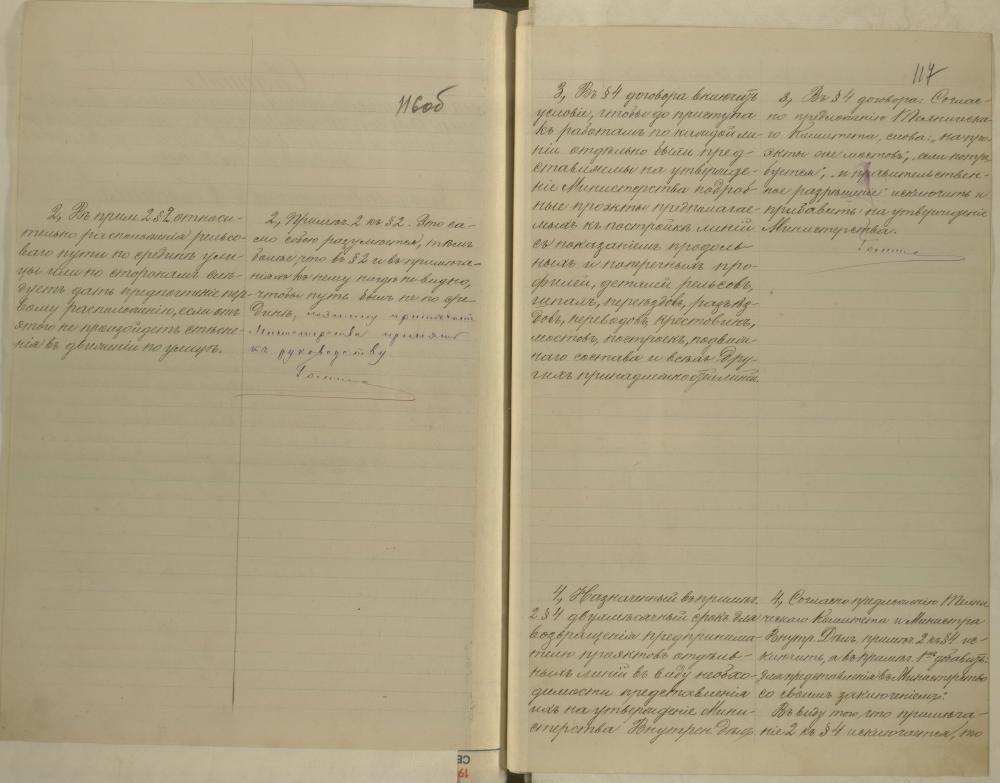 116об
2, Въ прим. 2 § 2, относи-
тельно расположенія рельсо-
ваго пути по срединѣ ули-
цы или по сторонамъ слѣ-
дуетъ дать предпочтеніе пер-
вому расположенію, если отъ
этого не произойдетъ стѣсне-
нія въ движеніи по улицѣ.
2, Примѣч. 2 къ § 2. Это са-
мо собою разумѣется, тѣмъ
болѣе, что въ § 2 и въ примѣча-
ніяхъ къ нему нигдѣ не видно,
чтобы путь былъ не по сре-
динѣ, поэтому
Министерства принять
къ руководству.
117
3, Въ § 4 договора включить
условіе, чтобы до приступа
къ работамъ по каждой ли-
ніи отдѣльно были пред-
ставляемы на утвержде-
ніе Министерства подроб-
ные проэкты предполагае-
мыхъ къ постройкѣ линій
съ показаніемъ продоль-
ныхъ и поперечныхъ про-
филей, деталей рельсовъ,
шпалъ, переѣздовъ, разъѣз-
довъ, переводовъ, крестовинъ,
мостовъ, построекъ, подвиж-
наго состава и всѣхъ дру-
гихъ принадлежностей линіи.
3, Въ § 4 договора: Соглас-
но предложенію Техническа-
го Комитета, слова: „на про-
экты же мостовъ", „если потре-
буется", „и правительствен-
ное разрѣшеніе" исключить и
прибавить: на утвержденіе
Министерства.
4, Назначенный въ примѣч.
2 § 4 двухмѣсячный срокъ для
возвращенія предпринима-
телю проэктовъ отдѣль-
ныхъ линій въ виду необхо-
димости представленія
ихъ на утвержденіе Мини-
стерства Внутрен. Дѣлъ
4, Согласно предложенію Техни-
ческаго Комитета и Министра
Внутр. Дѣлъ, примѣч. 2 къ § 4 ис-
ключить, а въ примѣч. 1мъ добавить:
для представленія въ Министерство
со своимъ заключеніемъ.
Въ виду того, что примѣча-
ніе 2 къ § 4 исключается, то